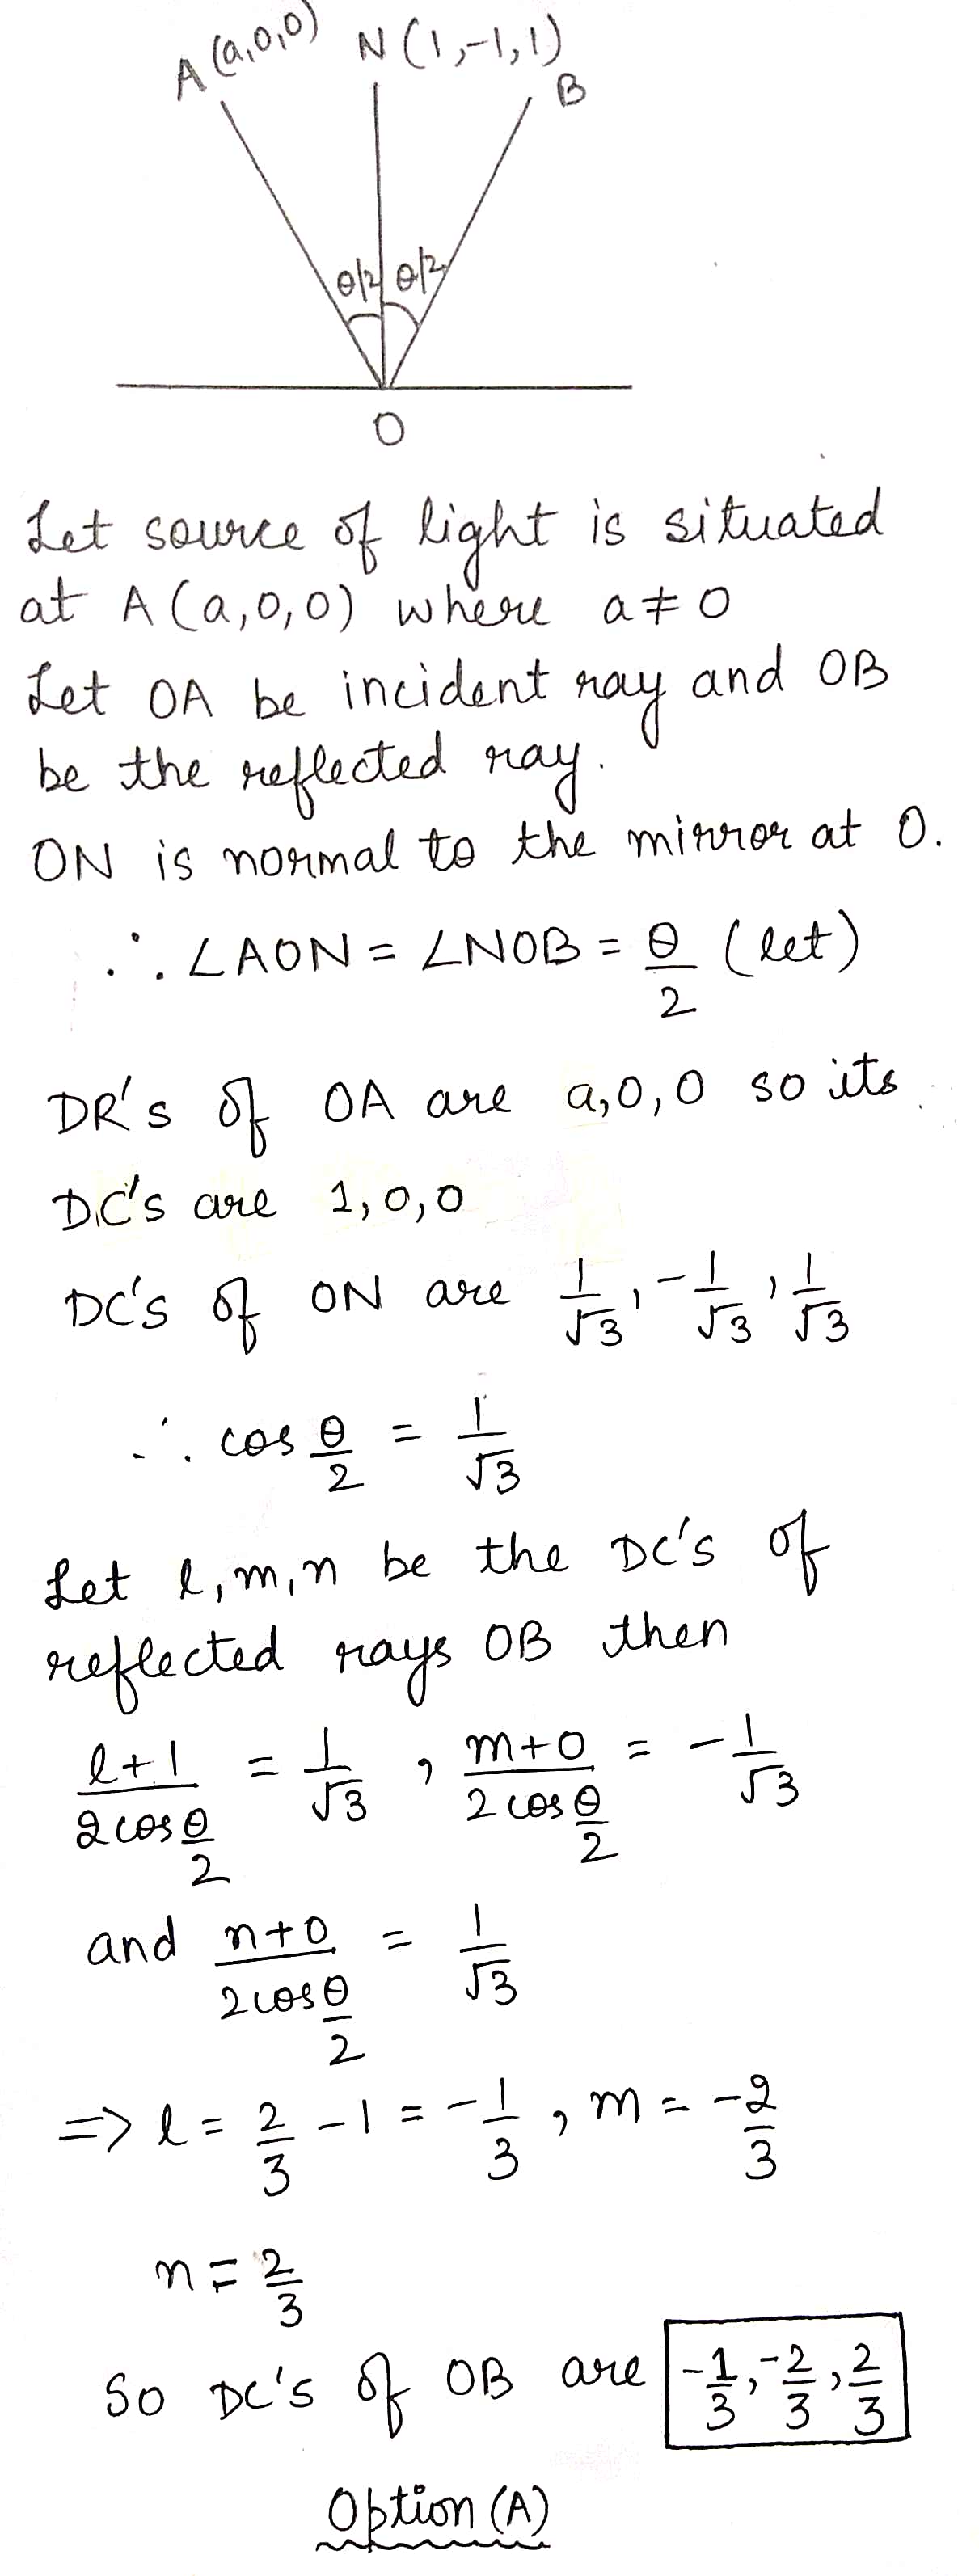 A (a,0,0) N (1,-1,1)
B
θ/2 θ/2
O
Let source of light is situated
at A (a,0,0) where a ≠ 0
Let OA be incident ray and OB
be the reflected ray.
ON is normal to the mirror at O.
∴ ∠AON = ∠NOB = θ/2 (let)
DR's of OA are a,0,0 so its
DC's are 1,0,0
DC's of ON are 1/√3, -1/√3, 1/√3
∴ cos θ/2 = 1/√3
Let l,m,n be the DC's of
reflected rays OB then
(l+1)/(2cos θ/2) = 1/√3 , (m+0)/(2cos θ/2) = -1/√3
and (n+0)/(2cos θ/2) = 1/√3
=> l = 2/3 -1 = -1/3 , m = -2/3
n = 2/3
So DC's of OB are -1/3, -2/3, 2/3
Option (A)